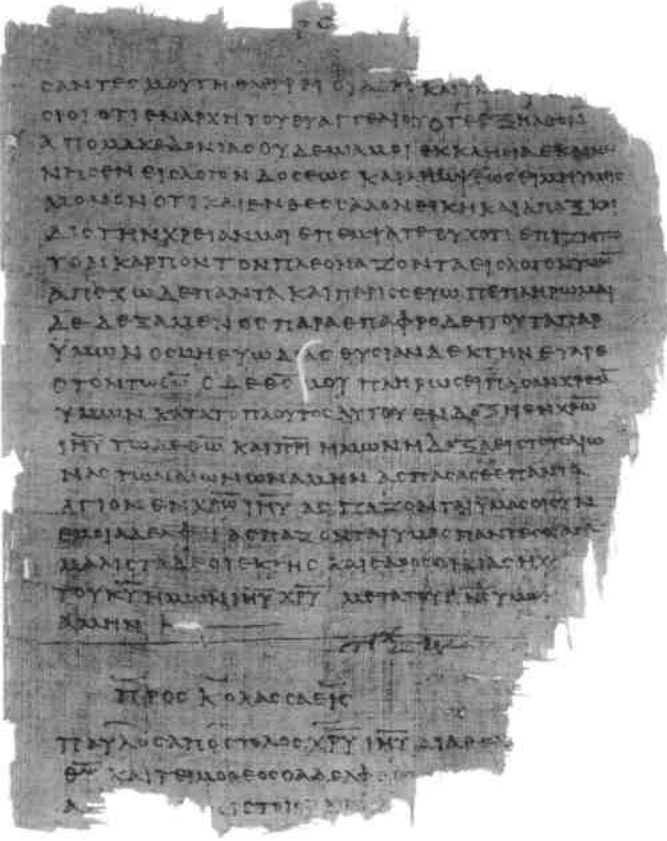 ϹΑΝΤΕϹ ΜΟΥ ΤΗ ΚΑΙ
ϹΙΟΙ ΟΤΙ ΕΝ ΑΡΧΗ ΤΟΥ ΕΥΑΓΓΕΛΙΟΥ ΟΤΕ ΕΞΗΛΘΟΝ
ΑΠΟ ΜΑΚΕΔΟΝΙΑϹ ΟΥΔΕΜΙΑ ΜΟΙ ΕΚΚΛΗϹΙΑ ΕΚΟΙΝΩ
ΝΗϹΕΝ ΕΙϹ ΛΟΓΟΝ ΔΟϹΕΩϹ ΚΑΙ ΛΗΜΨΕΩϹ ΕΙ ΜΗ ΥΜΕΙϹ
ΜΟΝΟΝ ΟΤΙ ΚΑΙ ΕΝ ΘΕϹϹΑΛΟΝΕΙΚΗ ΚΑΙ ΑΠΑΞ ΚΑΙ
ΔΙϹ ΤΗΝ ΧΡΕΙΑΝ ΜΟΙ ΕΠΕΜΨΑΤΕ ΟΥΧ ΟΤΙ ΕΠΙΖΗΤΩ
ΚΑΡΠΟΝ ΤΟΝ ΠΛΕΟΝΑΖΟΝΤΑ ΕΙϹ ΛΟΓΟΝ ΥΜΩΝ
ΑΠΕΧΩ ΔΕ ΠΑΝΤΑ ΚΑΙ ΠΕΡΙϹϹΕΥΩ ΠΕΠΛΗΡΩΜΑΙ
ΔΕ ΔΕΞΑΜΕΝΟϹ ΠΑΡΑ ΕΠΑΦΡΟΔΕΙΤΟΥ ΤΑ ΠΑΡ
ΥΜΩΝ ΟϹΜΗ ΕΥΩΔΙΑϹ ΘΥϹΙΑΝ ΔΕΚΤΗΝ ΕΥΑΡΕ
ϹΤΟΝ ΤΩ Θ̅Ω̅ Ο ΔΕ Θ̅Ϲ̅ ΜΟΥ ΠΛΗΡΩϹΕΙ ΠΑϹΑΝ ΧΡΕΙΑΝ
ΥΜΩΝ ΚΑΤΑ ΤΟ ΠΛΟΥΤΟϹ ΑΥΤΟΥ ΕΝ ΔΟΞΗ ΕΝ Χ̅Ρ̅Ω̅
Ι̅Η̅Υ̅ ΤΩ ΔΕ Θ̅Ω̅ ΚΑΙ Π̅Ρ̅Ι̅ ΗΜΩΝ Η ΔΟΞΑ ΕΙϹ ΤΟΥϹ ΑΙΩ
ΝΑϹ ΤΩΝ ΑΙΩΝΩΝ ΑΜΗΝ ΑϹΠΑϹΑϹΘΕ ΠΑΝΤΑ
ΑΓΙΟΝ ΕΝ Χ̅Ρ̅Ω̅ Ι̅Η̅Υ̅ ΑϹΠΑΖΟΝΤΑΙ ΥΜΑϹ ΟΙ ϹΥΝ
ΕΜΟΙ ΑΔΕΛΦΟΙ ΑϹΠΑΖΟΝΤΑΙ ΥΜΑϹ ΠΑΝΤΕϹ ΟΙ ΑΓΙΟΙ
ΜΑΛΙϹΤΑ ΔΕ ΟΙ ΕΚ ΤΗϹ ΚΑΙϹΑΡΟϹ ΟΙΚΙΑϹ Η Χ
ΤΟΥ Κ̅Υ̅ ΗΜΩΝ Ι̅Η̅Υ̅ Χ̅Ρ̅Υ̅ ΜΕΤΑ ΤΟΥ Π̅Ν̅Ϲ̅ ΥΜΩΝ
ΑΜΗΝ
ΠΡΟϹ ΚΟΛΑϹϹΑΕΙϹ
ΠΑΥΛΟϹ ΑΠΟϹΤΟΛΟϹ Χ̅Ρ̅Υ̅ Ι̅Η̅Υ̅ ΔΙΑ ΘΕΛ
Θ̅Υ̅ ΚΑΙ ΤΕΙΜΟΘΕΟϹ Ο ΑΔΕΛΦΟ